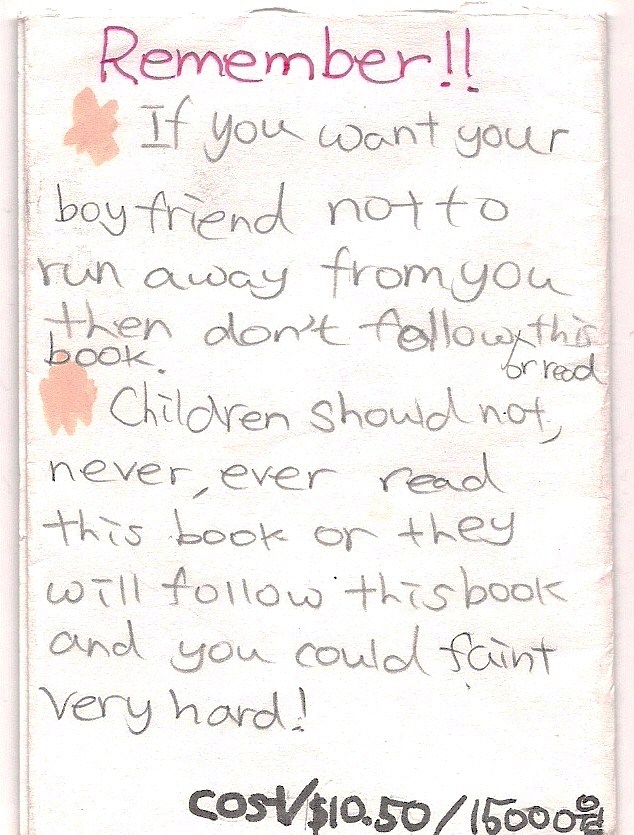 Remember!!
If you want your
boyfriend not to
run away from you
then don't follow this
or read
book.
Children should not,
never, ever read
this book or they
will follow this book
and you could faint
very hard!
cost/$10.50/15000원